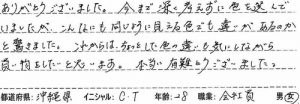 ありがとうございました。今まで深く考えずに色を選んで
いましたが、こんなにも同じように見える色でも違いがあるのか
と驚きました。これからは、ちょっとした色の違いも気にしながら
買い物をしたいと思います。本当に有難とうございました。
都道府県：沖縄県 イニシャル：C・T 年齢：28 職業：会社員 男・女